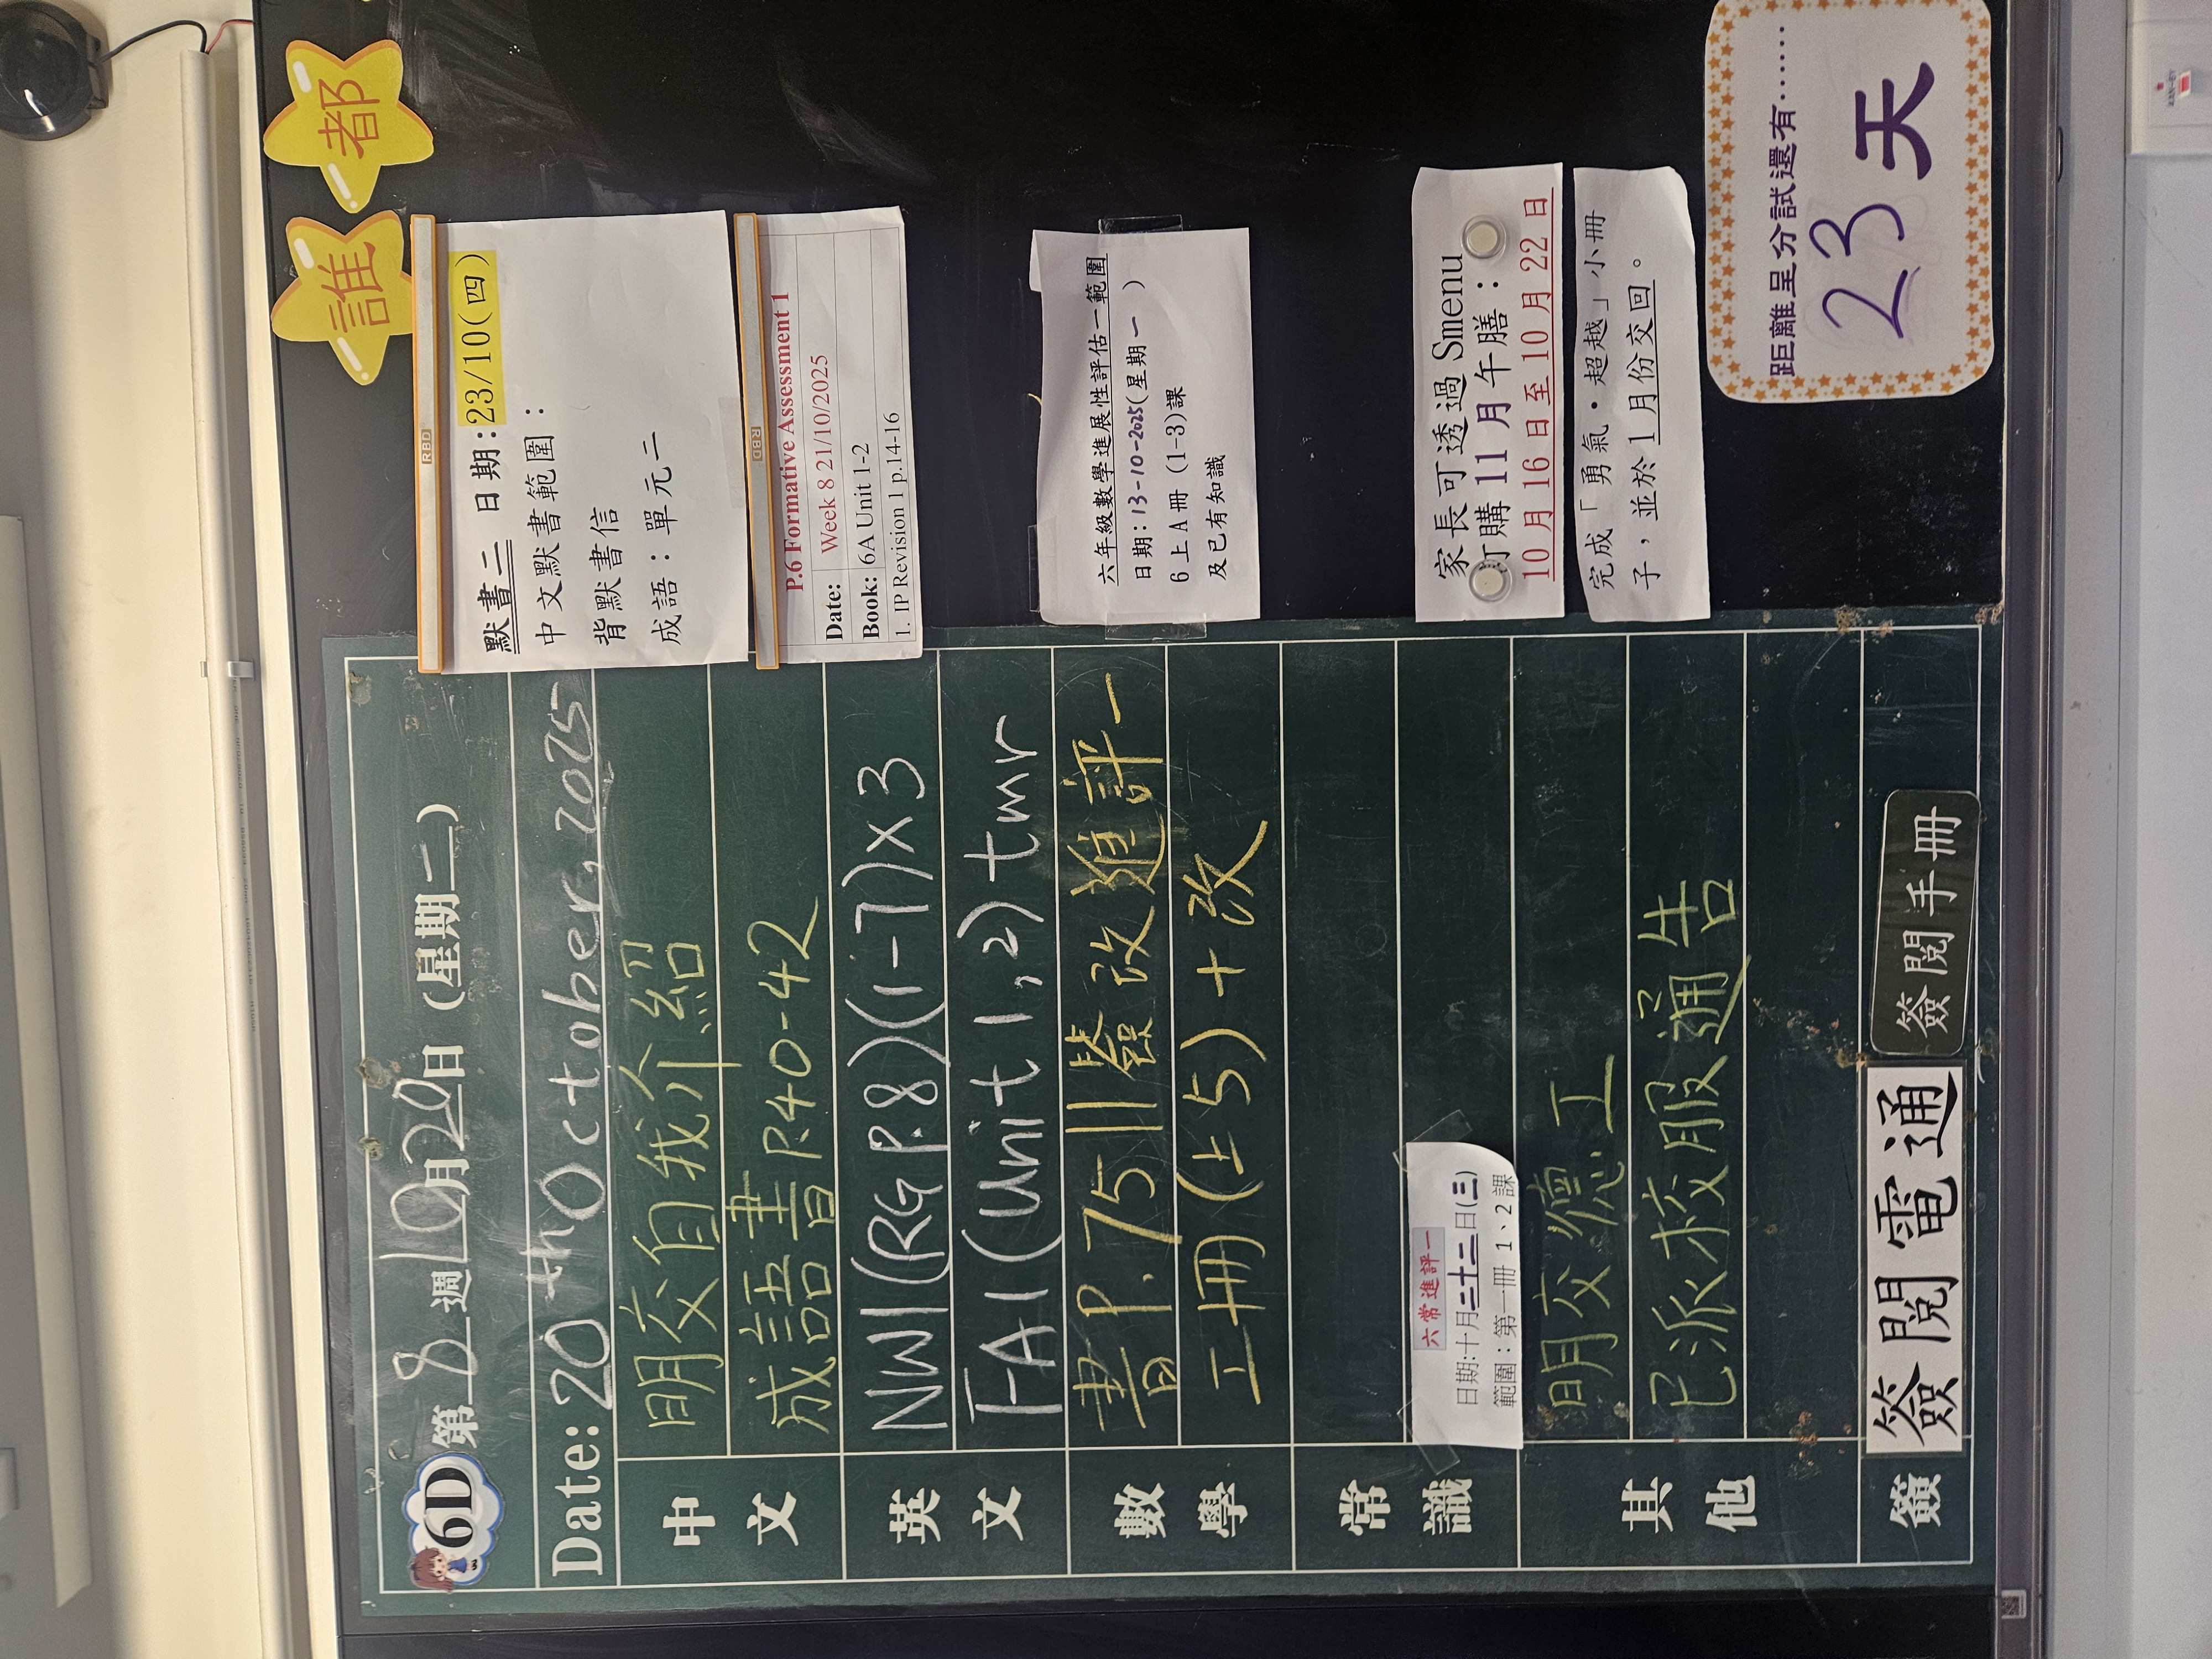 誰都
6D 第8週10月20日 (星期二)
Date: 20th October, 2025
中文
明交自我介紹
成語書P.40-42
英文
NW1(RG P.8)(1-7)x3
FA1(Unit 1,2) tmr
數學
書P.75 || 簽改進評一
工冊(±5)+改
常識
六常進評一
日期:十月二十二日(三)
範圍：第一冊 1、2 課
其他
明交德工
已派校服通告
簽
簽閱電通
簽閱手冊
默書二 日期:23/10(四)
中文默書範圍：
背默書信
成語：單元二
P.6 Formative Assessment 1
Date: Week 8 21/10/2025
Book: 6A Unit 1-2
1. IP Revision 1 p.14-16
六年級數學進展性評估一範圍
日期：13-10-2025(星期一)
6上A冊 (1-3)課
及已有知識
家長可透過 Smenu
訂購 11 月午膳：
10 月 16 日至 10 月 22 日
完成「勇氣・超越」小冊
子，並於 1 月份交回。
距離呈分試還有……
23 天
RBD
RBD